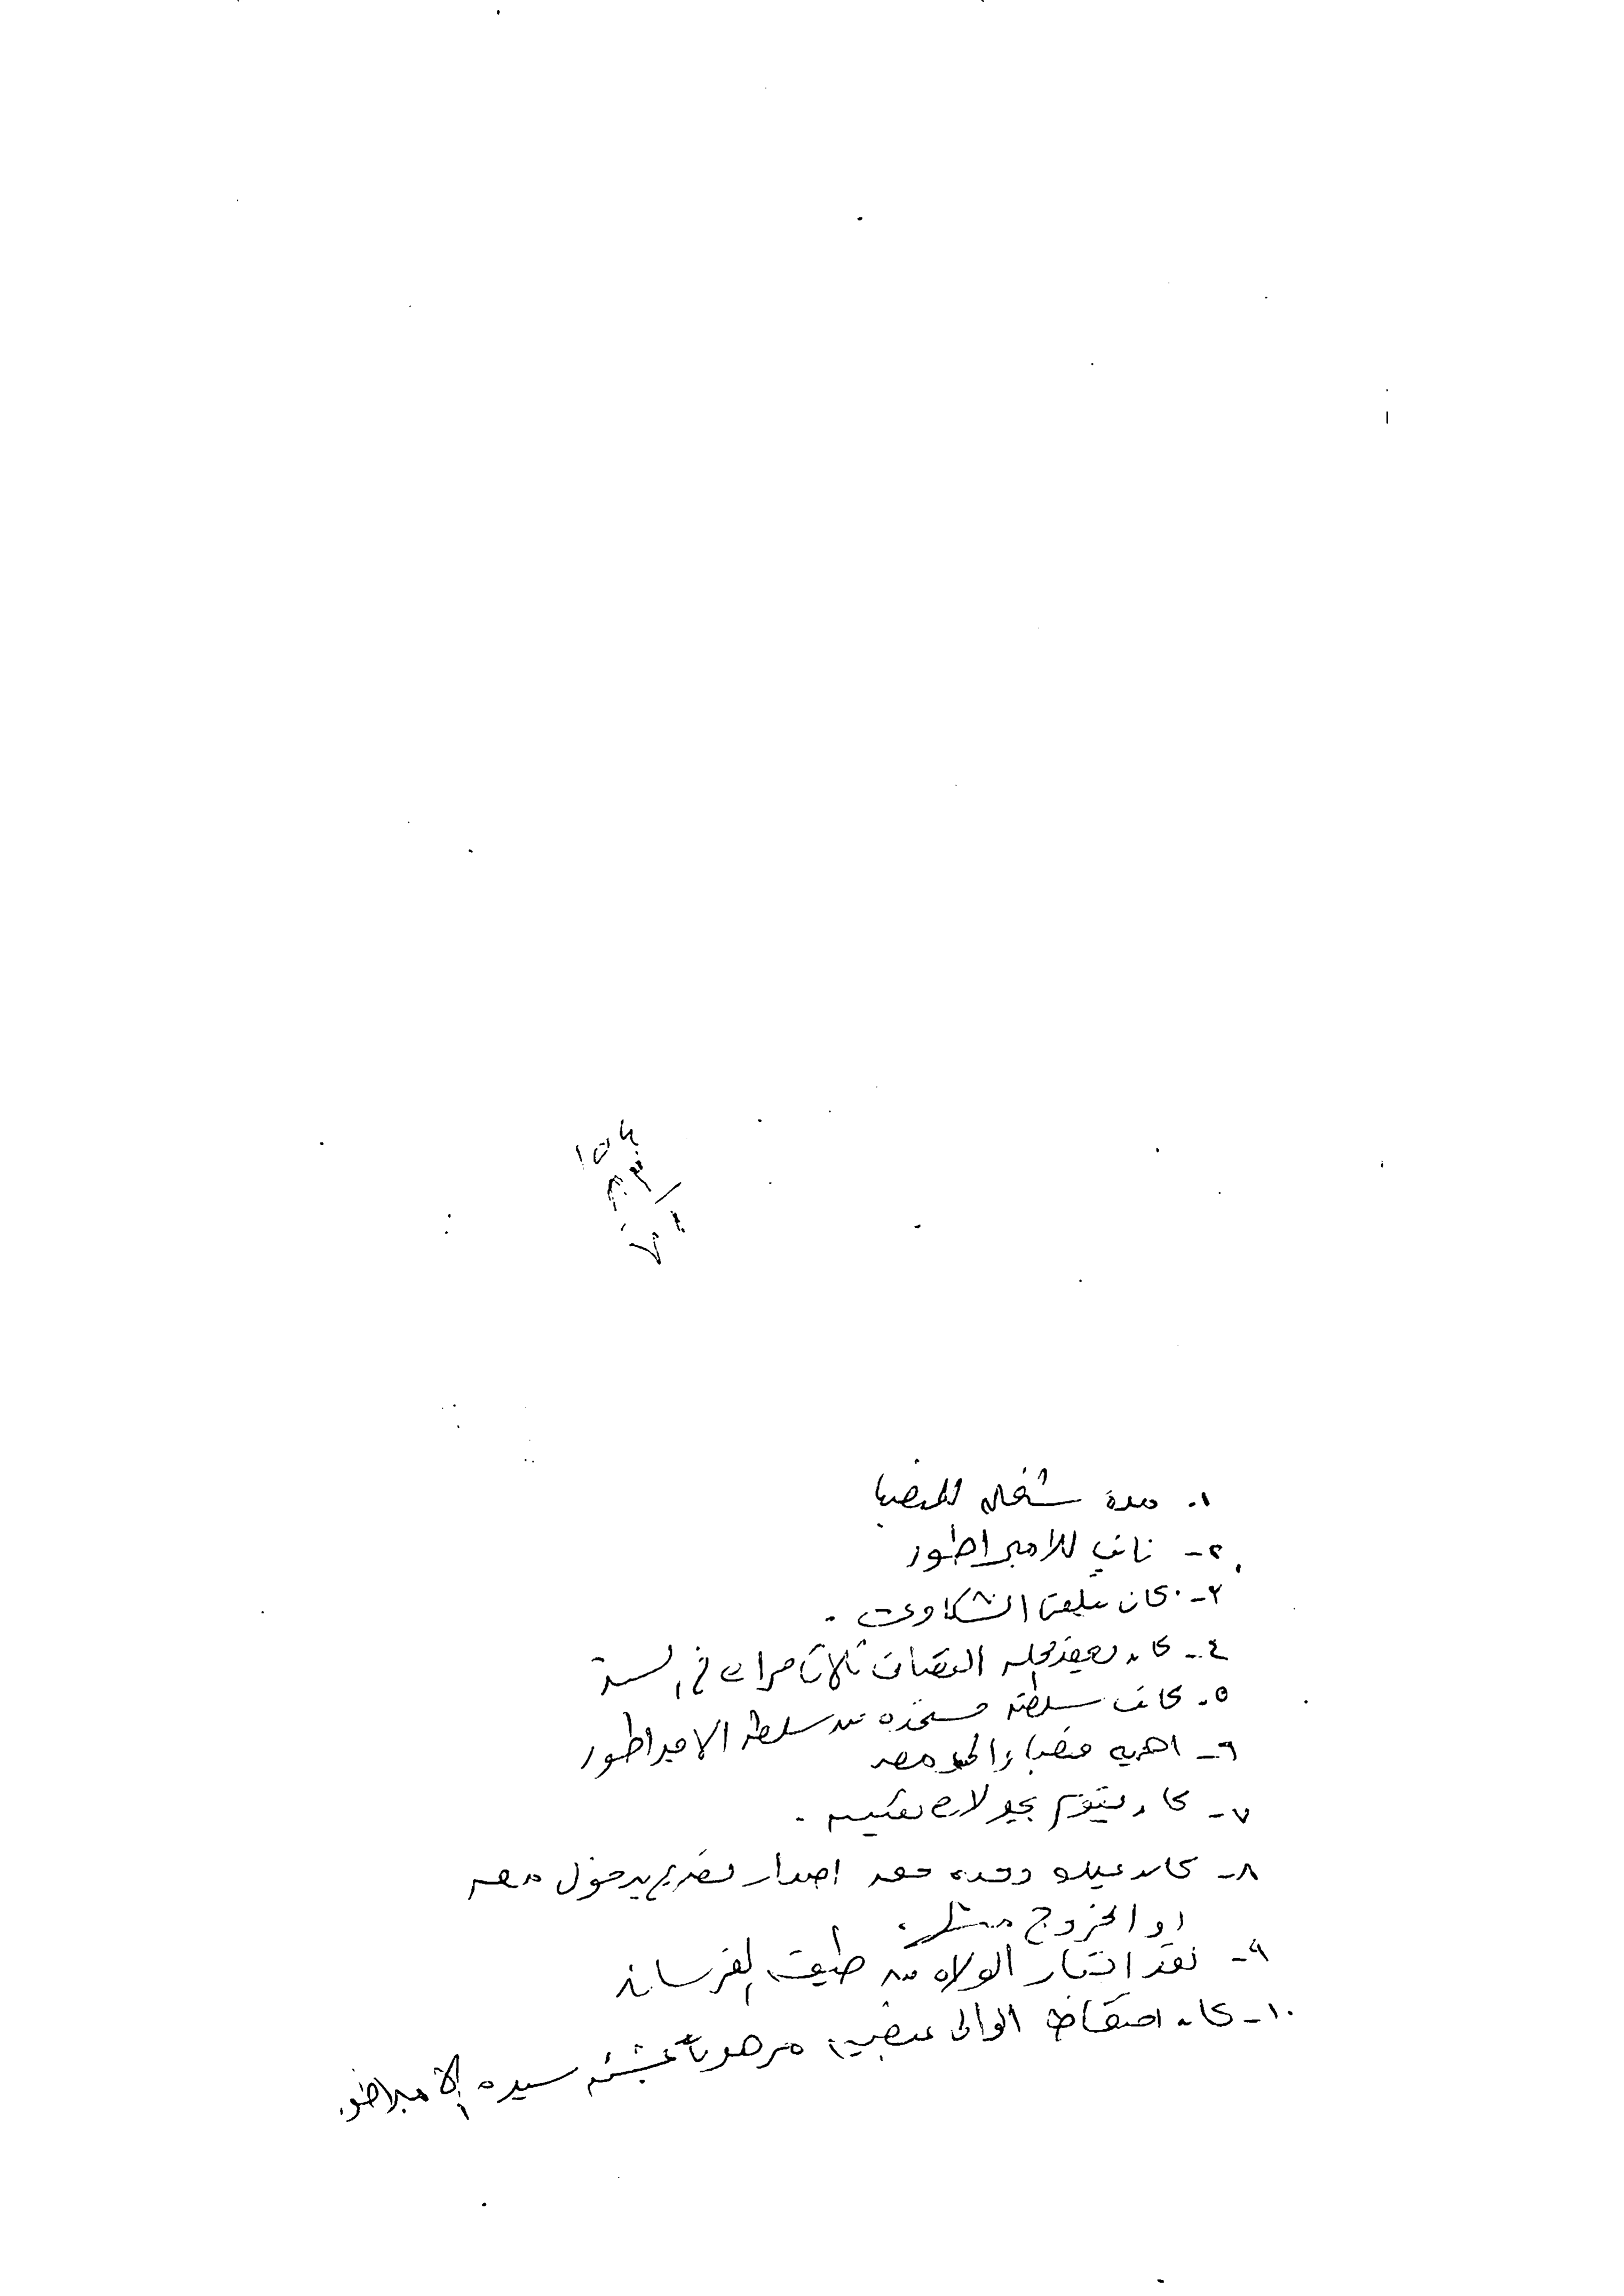 ١- مدة شغله للمنصب
٢- نائب للامبراطور
٣- كان يتلقى الشكاوى .
٤- كان يعقد محكمه ثلاث مرات في السنة
٥- كانت سلطته مستمده من سلطة الامبراطور
٦- اهميه منصب والى مصر
٧- كان يقوم بجولات تفتيشيه .
٨- كان عليه وحده اصدار تصريح بدخول مصر
او الخروج منها .
٩- اختيار الولاه من طبقة الفرسان
١٠- كان احتفاظ الوالى بمنصبه مرهوناً بمشيئه سيده الامبراطور